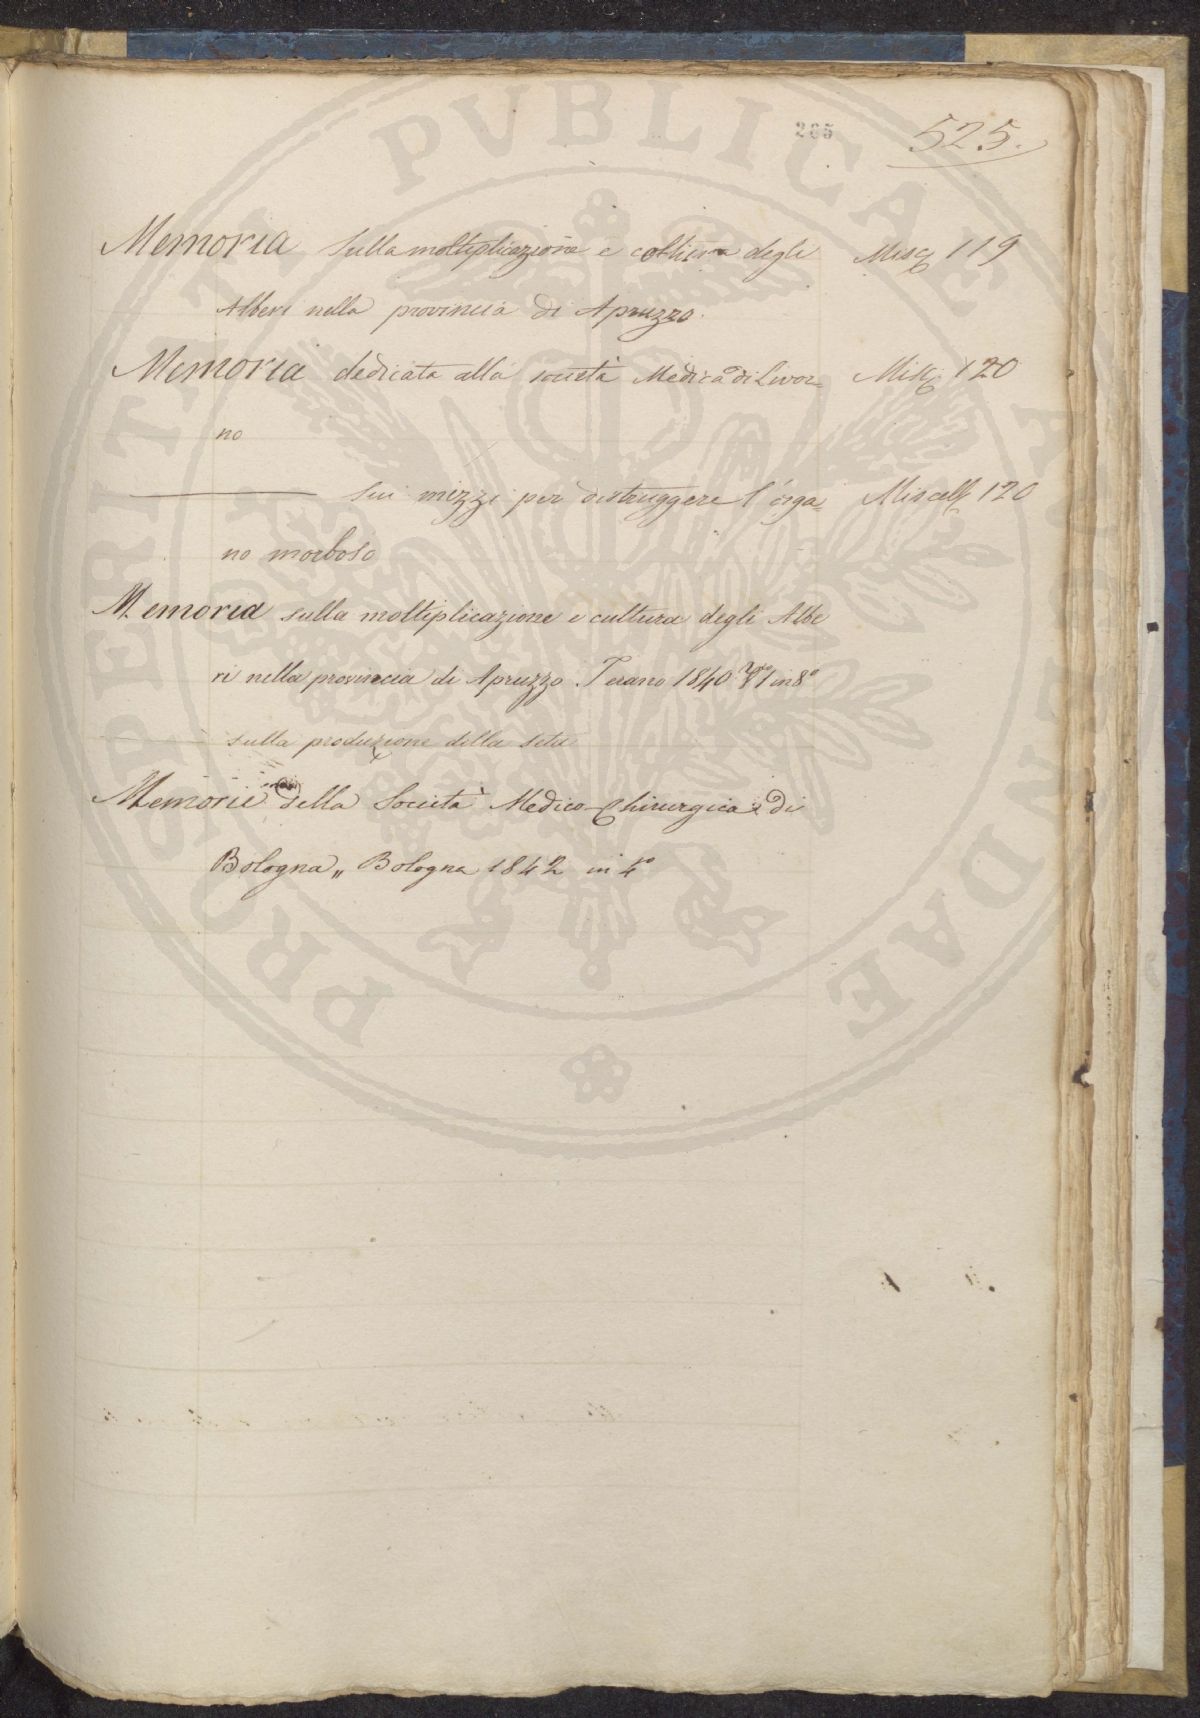 265
525.
Memoria sulla moltiplicazione e coltura degli Misc 119
Alberi nella provincia di Apruzzo.
Memoria dedicata alla società Medica di Livor= Misc 120
no
——— Sui mezzi per distruggere l'orga= Miscell 120
no morboso
Memoria sulla moltiplicazione e cultura degli Albe
ri nella provincia di Apruzzo. Teramo 1840 in 8°
——— sulla produzione della seta
Memorie della Società Medico-Chirurgica di
Bologna „ Bologna 1842 in 4°
PROSPERITATI PVBLICAE AVGENDAE